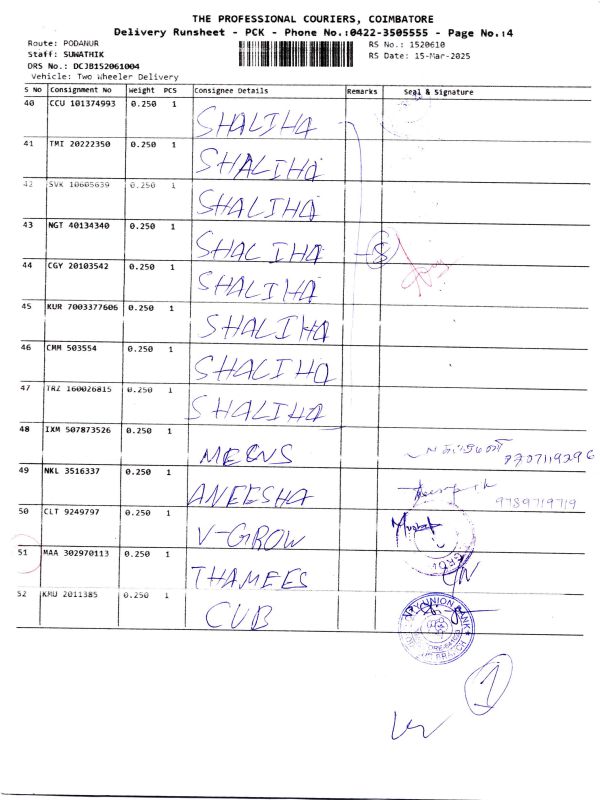 THE PROFESSIONAL COURIERS, COIMBATORE
Delivery Runsheet - PCK - Phone No.:0422-3505555 - Page No.:4
Route: PODANUR RS No.: 1520610
Staff: SUWATHIK RS Date: 15-Mar-2025
DRS No.: DCJB152061004
Vehicle: Two Wheeler Delivery
S No Consignment No Weight PCS Consignee Details Remarks Seal & Signature
40 CCU 101374993 0.250 1 SHALIHA
41 TMI 20222350 0.250 1 SHALIHA
42 SVK 10605639 0.250 1 SHALIHA
43 NGT 40134340 0.250 1 SHALIHA 8
44 CGY 20103542 0.250 1 SHALIHA
45 KUR 7003377606 0.250 1 SHALIHA
46 CMM 503554 0.250 1 SHALIHA
47 TRZ 160026815 0.250 1 SHALIHA
48 IXM 507873526 0.250 1
49 NKL 3516337 0.250 1 ANEESHA 9789719719
50 CLT 9249797 0.250 1 V-GROW
51 MAA 302970113 0.250 1 THAMEES
52 KMU 2011385 0.250 1 CUB
UNION BANK
1